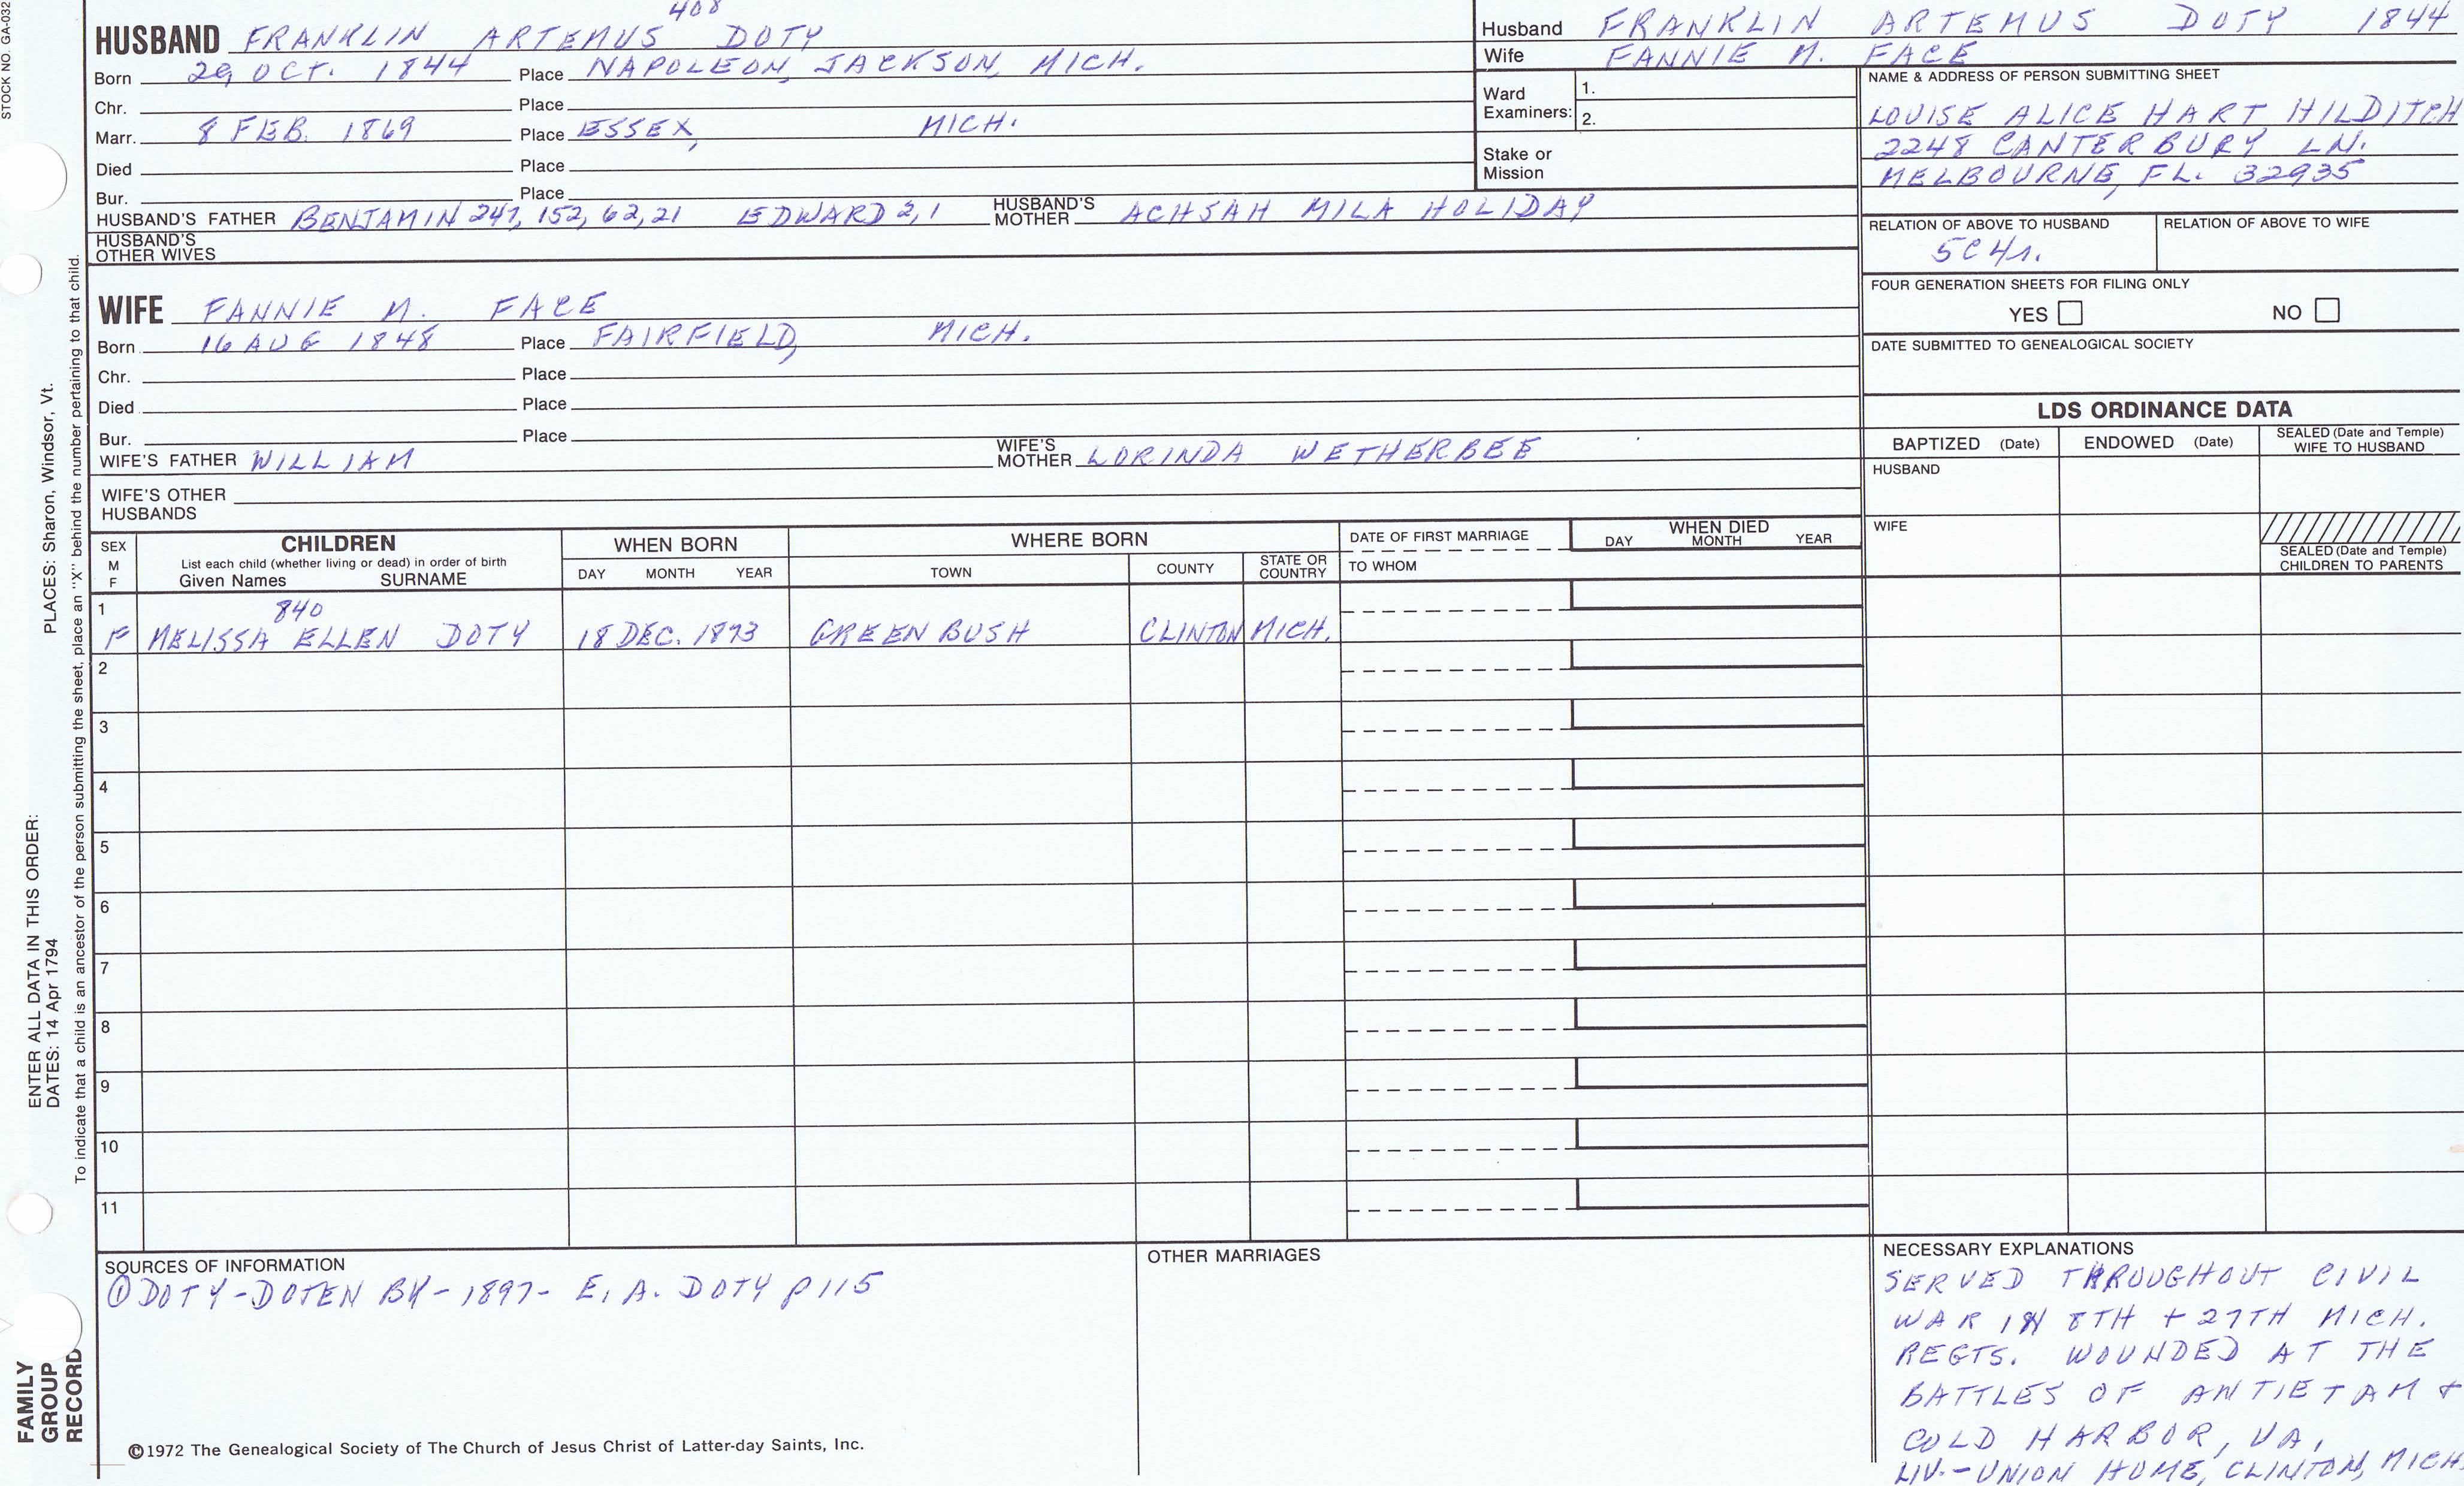 STOCK NO. GA-032
408
HUSBAND FRANKLIN ARTEMUS DOTY
Born 29 OCT. 1844 Place NAPOLEON, JACKSON, MICH.
Chr. Place
Marr. 8 FEB. 1869 Place ESSEX, MICH.
Died Place
Bur. Place
HUSBAND'S FATHER BENJAMIN 247, 152, 62, 21 EDWARD 2, 1 HUSBAND'S MOTHER ACHSAH MILA HOLIDAY
HUSBAND'S OTHER WIVES
WIFE FANNIE M. FACE
Born 16 AUG 1848 Place FAIRFIELD, MICH.
Chr. Place
Died Place
Bur. Place
WIFE'S FATHER WILLIAM WIFE'S MOTHER LORINDA WETHERBEE
WIFE'S OTHER HUSBANDS
Husband FRANKLIN ARTEMUS DOTY 1844
Wife FANNIE M. FACE
Ward Examiners: 1.
2.
Stake or Mission
NAME & ADDRESS OF PERSON SUBMITTING SHEET
LOUISE ALICE HART HILDITCH
2248 CANTERBURY LN.
MELBOURNE, FL. 32935
RELATION OF ABOVE TO HUSBAND RELATION OF ABOVE TO WIFE
5C4r.
FOUR GENERATION SHEETS FOR FILING ONLY
YES NO
DATE SUBMITTED TO GENEALOGICAL SOCIETY
LDS ORDINANCE DATA
BAPTIZED (Date) ENDOWED (Date) SEALED (Date and Temple) WIFE TO HUSBAND
HUSBAND
WIFE
SEALED (Date and Temple) CHILDREN TO PARENTS
SEX M F CHILDREN WHEN BORN WHERE BORN DATE OF FIRST MARRIAGE WHEN DIED
List each child (whether living or dead) in order of birth
Given Names SURNAME DAY MONTH YEAR TOWN COUNTY STATE OR COUNTRY TO WHOM DAY MONTH YEAR
1 840
F MELISSA ELLEN DOTY 18 DEC. 1873 GREENBUSH CLINTON MICH.
2
3
4
5
6
7
8
9
10
11
SOURCES OF INFORMATION
① DOTY-DOTEN BY-1897- E. A. DOTY p 115
OTHER MARRIAGES
NECESSARY EXPLANATIONS
SERVED THROUGHOUT CIVIL
WAR IN 8TH + 27TH MICH.
REGTS. WOUNDED AT THE
BATTLES OF ANTIETAM +
COLD HARBOR, VA,
LIV.-UNION HOME, CLINTON, MICH.
©1972 The Genealogical Society of The Church of Jesus Christ of Latter-day Saints, Inc.
FAMILY GROUP RECORD
ENTER ALL DATA IN THIS ORDER:
DATES: 14 Apr 1794
PLACES: Sharon, Windsor, Vt.
To indicate that a child is an ancestor of the person submitting the sheet, place an "X" behind the number pertaining to that child.